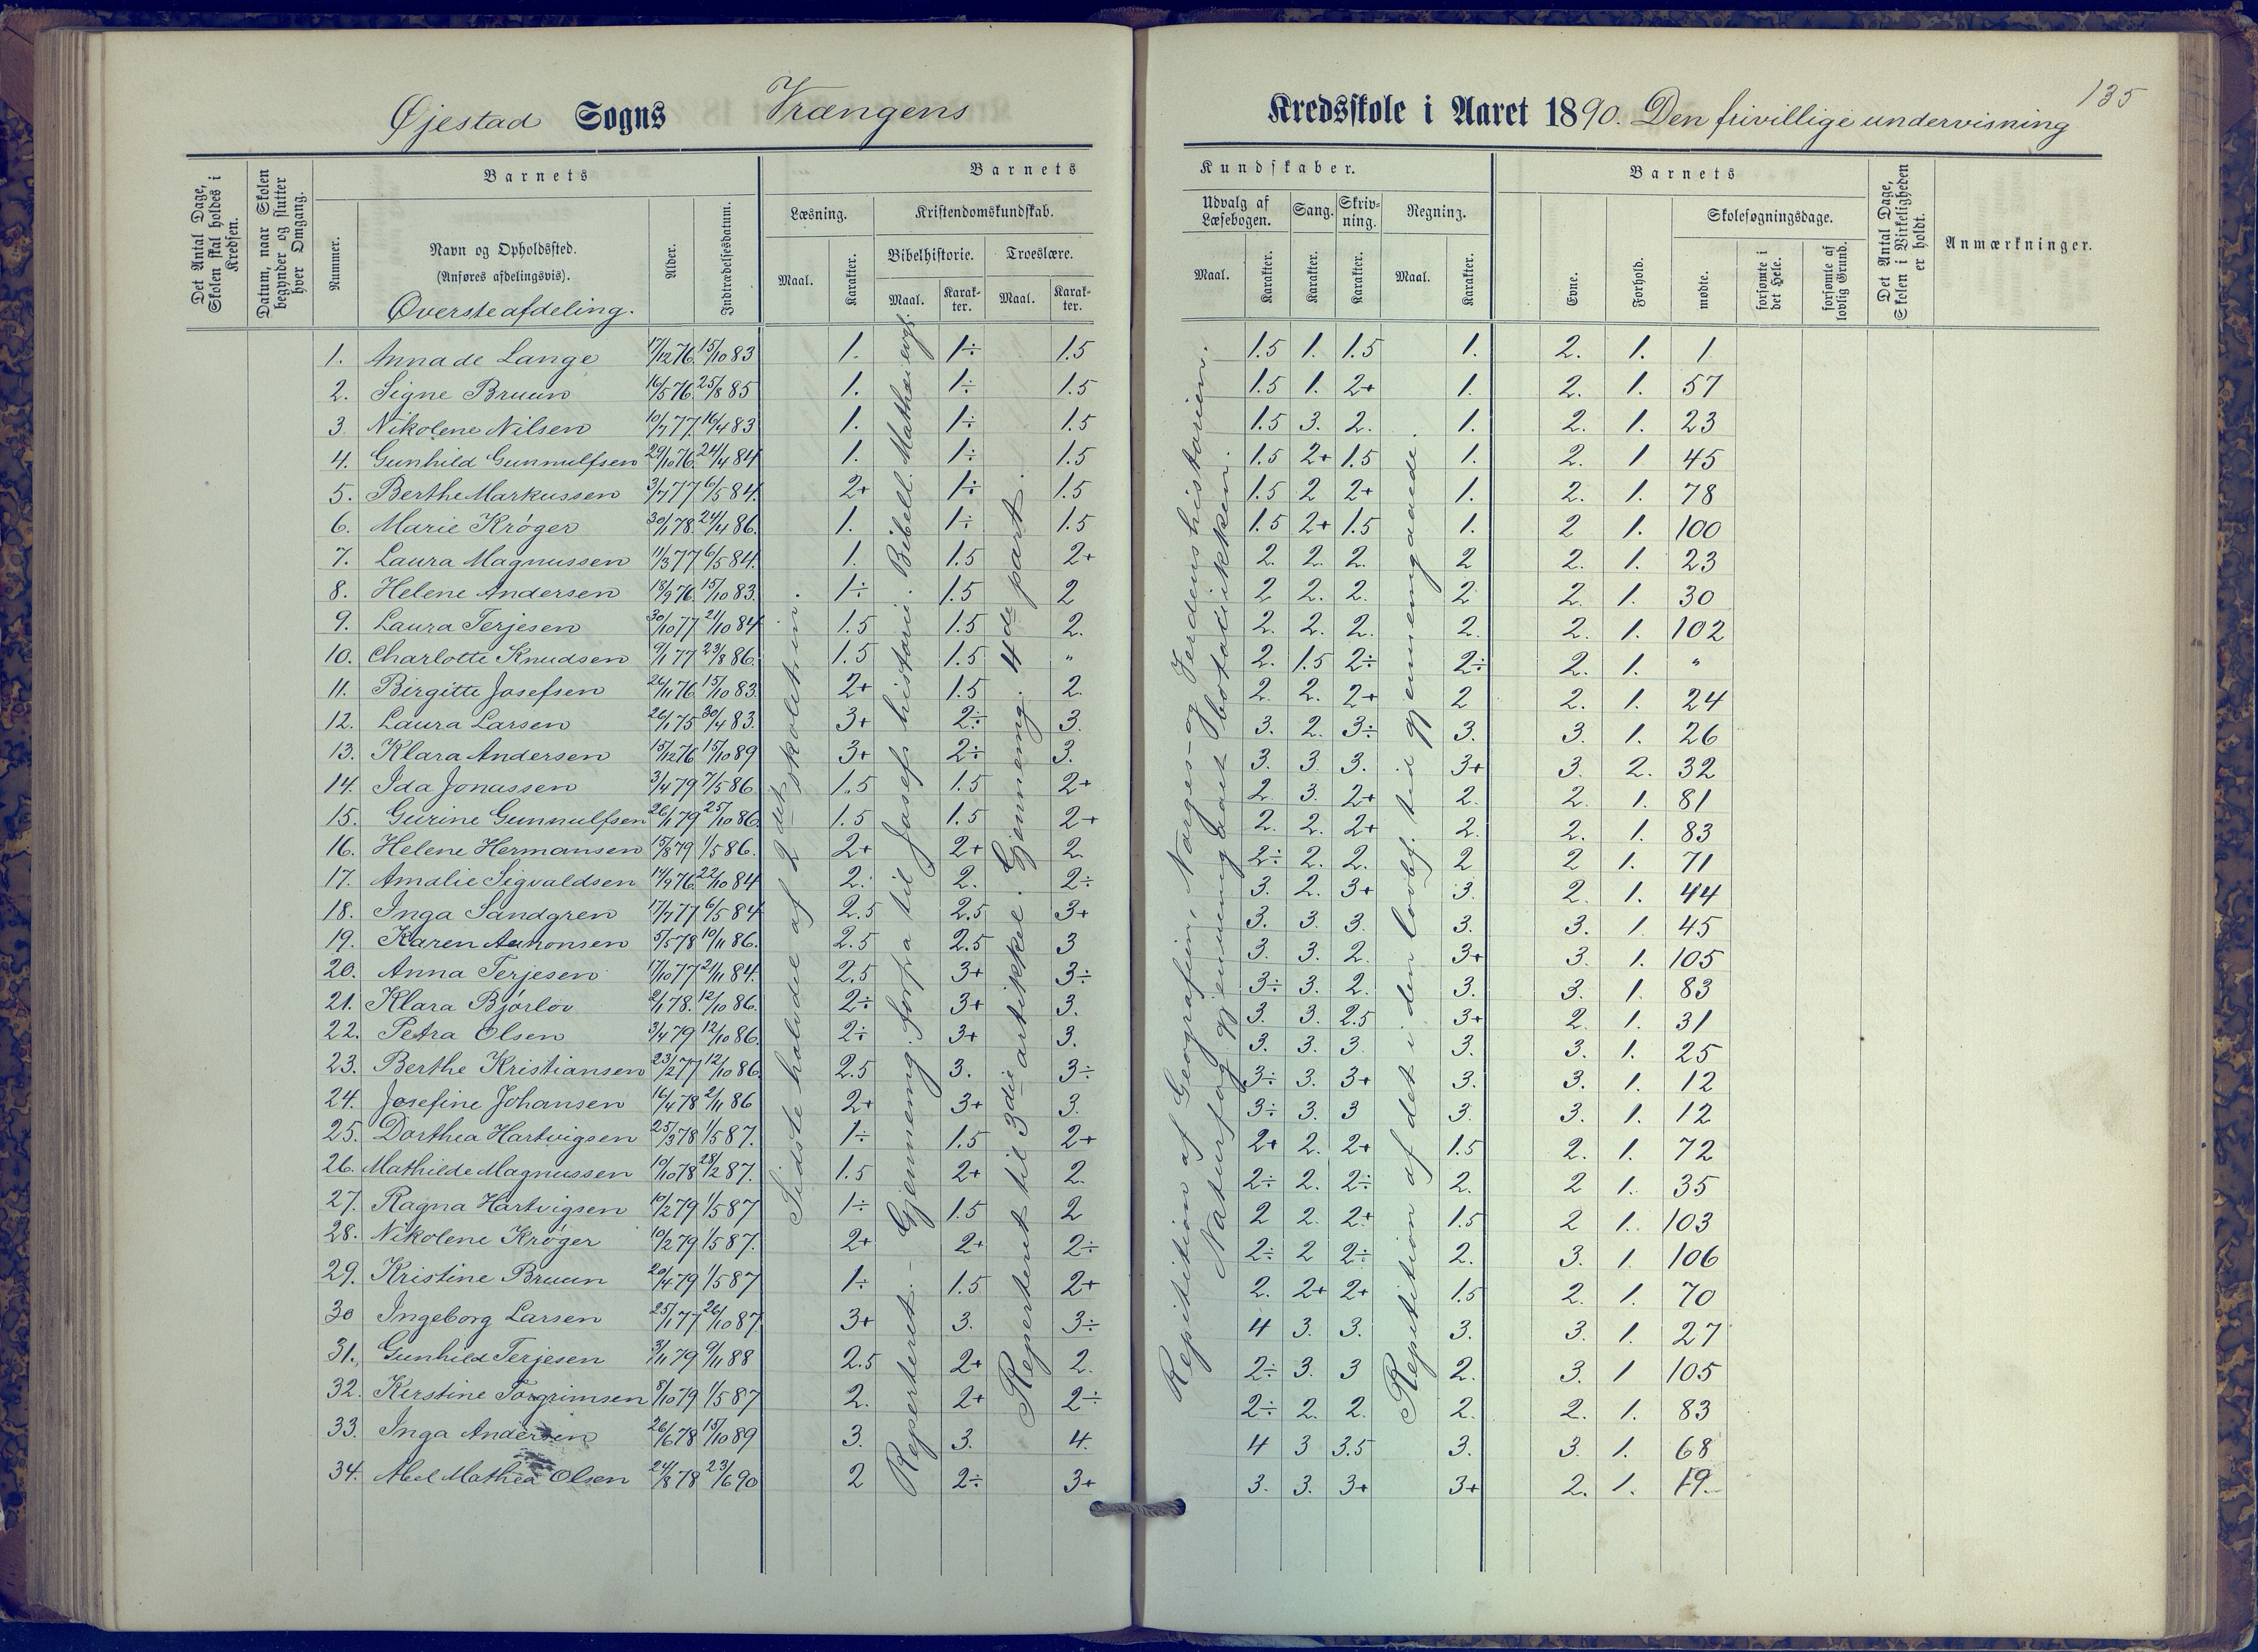 135
Øjestad Sogns Vrængens Kredsskole i Aaret 1890. Den frivillige undervisning
Det Antal Dage, Skolen skal holdes i Kredsen.
Datum, naar Skolen begynder og slutter hver Omgang.
Barnets
Nummer.
Navn og Opholdssted.
(Anføres afdelingsvis).
Øversteafdeling.
Alder.
Indtrædelsesdatum.
Barnets Kundskaber.
Læsning. Kristendomskundskab. Udvalg af Læsebogen. Sang. Skriv-ning. Regning.
Bibelhistorie. Troeslære.
Maal. Karakter. Maal. Karak-ter. Maal. Karak-ter. Maal. Karakter. Karakter. Karakter. Maal. Karakter.
Barnets
Evne. Forhold. Skolesøgningsdage.
mødte. forsømte i det Hele. forsømte af lovlig Grund.
Det Antal Dage, Skolen i Virkeligheden er holdt.
Anmærkninger.
1. Anna de Lange 17/12 76. 15/10 83 1. 1÷ 1.5 1.5 1. 1.5 1. 2. 1. 1
2. Signe Bruun 16/5 76. 25/8 85 1. 1÷ 1.5 1.5 1. 2+ 1. 2. 1. 57
3 Nikolene Nilsen 10/7 77. 16/4 83 1. 1÷ 1.5 1.5 3. 2. 1. 2. 1. 23
4. Gunhild Gunnulfsen 29/10 76. 24/4 84 1. 1÷ 1.5 1.5 2+ 1.5 1. 2. 1 45
5. Berthe Markussen 3/7 77 6/5 84. 2+ 1÷ 1.5 1.5 2 2+ 1. 2. 1. 78
6. Marie Krøger 30/1 78. 24/4 86. 1. 1÷ 1.5 1.5 2+ 1.5 1. 2 1. 100
7. Laura Magnussen 11/3 77 6/5 84. 1. 1.5 2+ 2. 2. 2. 2 2. 1. 23
8. Helene Andersen 18/9 76. 15/10 83. 1÷ 1.5 2 2 2. 2. 2 2. 1. 30
9. Laura Terjesen 30/10 77 21/10 84 1.5 1.5 2. 2. 2. 2. 2. 2. 1. 102
10. Charlotte Knudsen 9/1 77 23/8 86. 1.5 1.5 " 2. 1.5 2÷ 2÷ 2. 1. "
11. Birgitte Josefsen 26/11 76. 15/10 83. 2+ 1.5 2. 2. 2. 2+ 2 2. 1. 24
12. Laura Larsen 26/1 75 30/4 83. 3+ 2÷ 3. 3. 2. 3÷ 3. 3. 1. 26
13. Klara Andersen 15/12 76 15/10 89 3+ 2÷ 3. 3. 3. 3. 3+ 3. 2. 32
14. Ida Jonassen 3/4 79 7/5 86. 1.5 1.5 2+ 2. 3. 2+ 2. 2. 1. 81
15. Gurine Gunnulfsen 26/1 79 25/10 86. 1.5 1.5 2+ 2. 2. 2+ 2. 2. 1. 83
16. Helene Hermansen 15/8 79 1/5 86. 2+ 2+ 2. 2÷ 2. 2. 2 2 1. 71
17. Amalie Sigvaldsen 14/9 76. 22/10 84 2. 2. 2÷ 3. 2. 3+ 3. 2. 1. 44
18. Inga Sandgren 17/7 77 6/5 84 2.5 2.5 3+ 3. 3. 3. 3. 3. 1. 45
19. Karen Aamonsen 5/5 78 10/11 86. 2.5 2.5 3 3. 3. 2. 3+ 3. 1. 105
20. Anna Terjesen 17/10 77 21/11 84. 2.5 3+ 3÷ 3÷ 3. 2. 3. 3. 1. 83
21. Klara Bjørlov 2/1 78. 12/10 86. 2÷ 3+ 3. 3. 3. 2.5 3+ 2. 1. 31
22. Petra Olsen 3/4 79 12/10 86. 2÷ 3+ 3. 3. 3. 3 3. 3. 1. 25
23. Berthe Kristiansen 23/2 77 12/10 86. 2.5 3. 3÷ 3÷ 3. 3+ 3. 3. 1. 12
24. Josefine Johansen 16/4 78 2/11 86 2+ 3+ 3. 3÷ 3. 3 3. 3. 1. 12
25. Dorthea Hartvigsen 25/3 78 1/5 87. 1÷ 1.5 2+ 2+ 2. 2+ 1.5 2. 1. 72
26. Mathilde Magnussen 10/10 78 28/2 87. 1.5 2+ 2. 2÷ 2. 2÷ 2. 2 1. 35
27. Ragna Hartvigsen 10/2 79 1/5 87 1÷ 1.5 2 2 2. 2+ 1.5 2 1. 103
28. Nikolene Krøger 10/2 79 1/5 87. 2+ 2+ 2÷ 2÷ 2 2÷ 2. 3. 1. 106
29. Kristine Bruun 20/4 79 1/5 87 1÷ 1.5 2+ 2. 2+ 2+ 1.5 2. 1. 70
30 Ingeborg Larsen 25/1 77 26/10 87. 3+ 3. 3÷ 4 3. 3. 3. 3. 1. 27
31. Gunhild Terjesen 3/11 79 9/11 88 2.5 2+ 2. 2÷ 3. 3 2. 3. 1 105
32. Kirstine Torgrimsen 8/10 79 1/5 87 2. 2+ 2÷ 2÷ 2. 2. 2. 2. 1. 83
33. Inga Andersen 26/6 78 15/10 89 3. 3. 4. 4 3 3.5 3. 3. 1. 68
34. Abel Mathea Olsen 24/8 78 23/6 90 2 2÷ 3+ 3. 3. 3+ 3+ 2. 1. 19.
Sidste halvdel af 2det skoletrin.
Reperteret. – Gjennemg. forfra til Josefs historie. Bibell. Mathæi evgl.
Reperteret til 3die artikkel. Gjennemg. 4de part.
Repitition af Geografien, Norges- og Verdenshistorien.
Naturfog gjennemgaaet botadikken.
Repitition af det i den lovbf. tid gjennemgaaede.